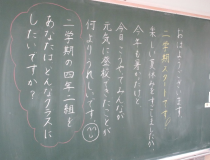 おはようございます。
二学期スタートです。
楽しい夏休みをすごしましたか。
今年も暑かったけど
今日こうやってみんなが
元気に登校できたことが
何よりうれしいです
二学期の四年二組を
あなたはどんなクラスに
したいですか?